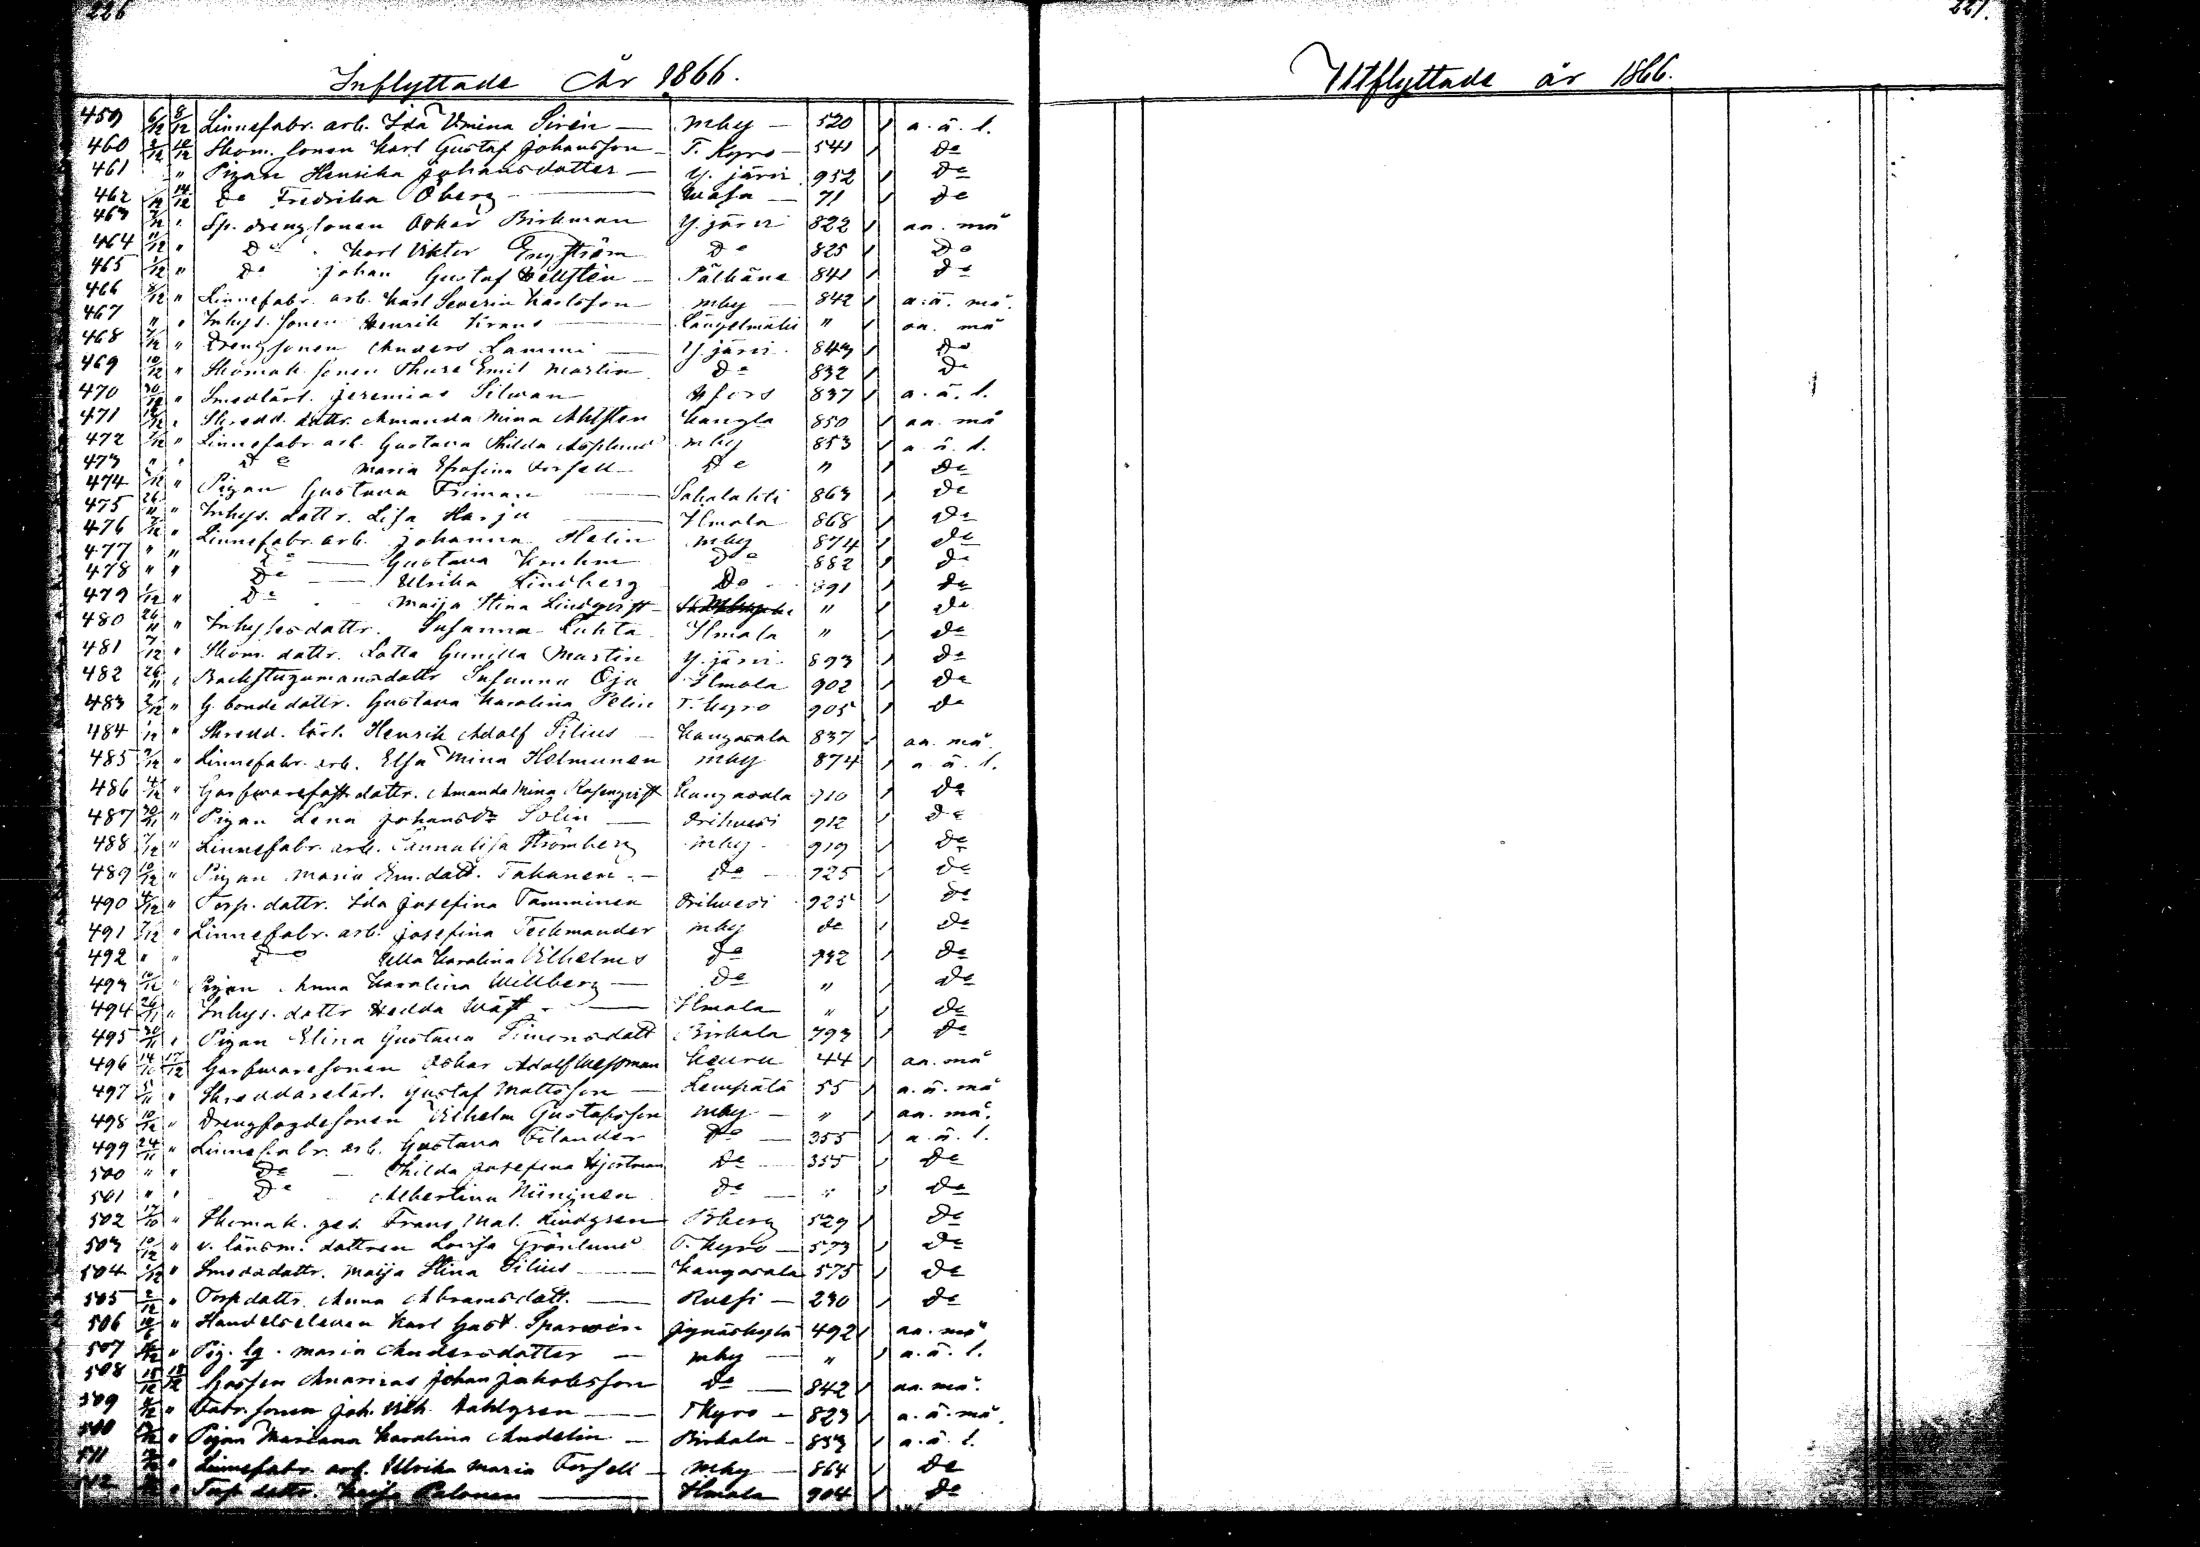 226
Inflyttade År 1866.
459 6/12 8/12 Linnefabr. arb. Ida Vmina Sirén — mby — 520 a. ä. l.
460 3/12 10/12 Skom. sonen Karl Gustaf Johansson — T. Kyro — 541 Do
461 " Pigan Henrika Johansdotter — Y. järvi 952 Do
462 14/12 Do Fredrika Öberg — Wasa — 71 Do
463 7/12 " Sp. drengsonen Oskar Birkman Y. järvi 822 aa. må
464 11/12 " Do Karl Viktor Engström Do 825 Do
465 1/12 " Do Johan Gustaf Hellstén — Pälkäne 841 Do
466 8/12 " Linnefabr. arb. Karl Severin Karlsson — mby — 842 a. ä. må.
467 " " Inhys. sonen Henrik Krans — Längelmäki " aa. må
468 7/12 " Drengsonen Anders Lammi — Y. järvi 843 Do
469 10/12 " Skomak. sonen Thure Emil Martin Do 832 Do
470 30/11 " Smedlärl. Jeremias Silwan Hfors 837 a. ä. l.
471 12/12 " Skredd. dottr. Amanda Mina Ahlsten Kangla 850 aa. må
472 7/12 " Linnefabr. arb. Gustava Thilda Asplund mby 853 a. ä. l.
473 " " Do Maria Efrosina Forsell — Do " Do
474 /12 " Pigan Gustava Friman — Sahalahti 863 Do
475 26/11 " Inhys. dottr. Lisa Harju — Ilmola 868 Do
476 7/12 " Linnefabr. arb. Johanna Helin mby 874 Do
477 " " Do — Gustava Do 882 Do
478 " " Do — Ulrika Lindberg Do 891 Do
479 1/12 " Do Maija Stina Lindqvist — " Do
480 26/11 " Inhysesdottr. Susanna Luhta Ilmola " Do
481 7/12 " Skom. dottr. Lotta Gunilla Martin Y. järvi 893 Do
482 26/11 " Backstugumansdottr Susanna Oja Ilmola 902 Do
483 2/12 " G. bonde dottr. Gustava Karolina Pelin T. Kyro 905 Do
484 1/12 " Skredd. lärl. Henrik Adolf Silius — Kangasala 837 aa. må.
485 7/12 " Linnefabr. arb. Elsa Mina Helmunen mby 874 a. ä. l.
486 4/12 " Garfvaredottr. Amanda Mina Rosenqvist Kangasala 910 Do
487 30/11 " Pigan Lena Johansdr Solin — Orihvesi 912 Do
488 7/12 " Linnefabr. arb. Sannalisa Strömberg mby 919 Do
489 10/12 " Pigan Maria Em. dott. Takanen — Do 925 Do
490 4/12 " Torp. dottr. Ida Josefina Tamminen Orihvesi 925 Do
491 7/12 " Linnefabr. arb. Josefina Teckmander mby do Do
492 " " Do Ulla Karolina Vilhelms Do 932 Do
493 10/12 " Pigan Anna Karolina Willberg — Do " Do
494 26/11 " Inhys. dottr Hedda Wäst — Ilmola " Do
495 30/11 " Pigan Elina Gustava Simonsdott Birkala 793 Do
496 14/11 17/12 Garfvaresonen Oskar Adolf Wessman Keuru 44 aa. må
497 5/11 " Skreddarelärl. Gustaf Mattsson — Lempälä 55 a. ä. må
498 10/12 " Drengfogdesonen Vilhelm Gustafsson mby — " aa. må.
499 24/11 " Linnefabr. arb. Gustava Filander Do — 355 a. ä. l.
500 " " Do — Thilda Josefina Hjertman Do — 355 Do
501 " " Do Albertina Niininen Do — " Do
502 17/10 " Skomak. ges. Frans Mat. Lindgren Bberg 529 Do
503 10/12 " v. länsm. dottren Lovisa Grönlund T. Kyro — 573 Do
504 1/12 " Smedsdottr. Maija Stina Silius — Kangasala 575 Do
505 2/12 " Torp dottr. Anna Abramsdott. — Ruesi — 230 Do
506 14/6 " Handelseleven Karl Gust. Sparvén Jyväskylä 492 aa. må
507 /12 " Pig. lg. Maria Andersdotter — mby — " a. ä. l.
508 15/12 18/12 Gossen Ananias Johan Jakobsson Do — 842 aa. må.
509 /12 " Fabr. sonen Joh. Vilh. Dahlgren — T Kyro — 823 a. ä. må.
510 " Pigan Mariana Karolina Andelin — Birkala — 853 a. ä. l.
511 " Linnefabr. arb. Ulrika Maria Forsell — mby — 864 Do
512 " Torp dottr. Kaisa Palonen — Ilmola 904 Do
227.
Utflyttade år 1866.